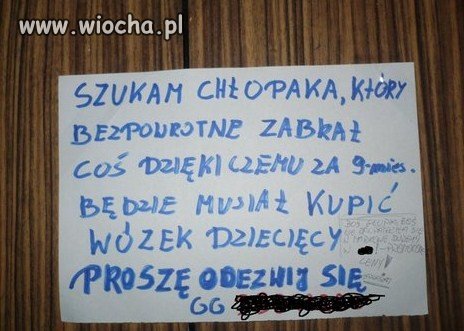 www.wiocha.pl
SZUKAM CHŁOPAKA, KTÓRY
BEZPOWROTNE ZABRAŁ
COŚ DZIĘKI CZEMU ZA 9-mies.
BĘDZIE MUSIAŁ KUPIĆ
WÓZEK DZIECIĘCY
PROSZĘ ODEZWIJ SIĘ
GG